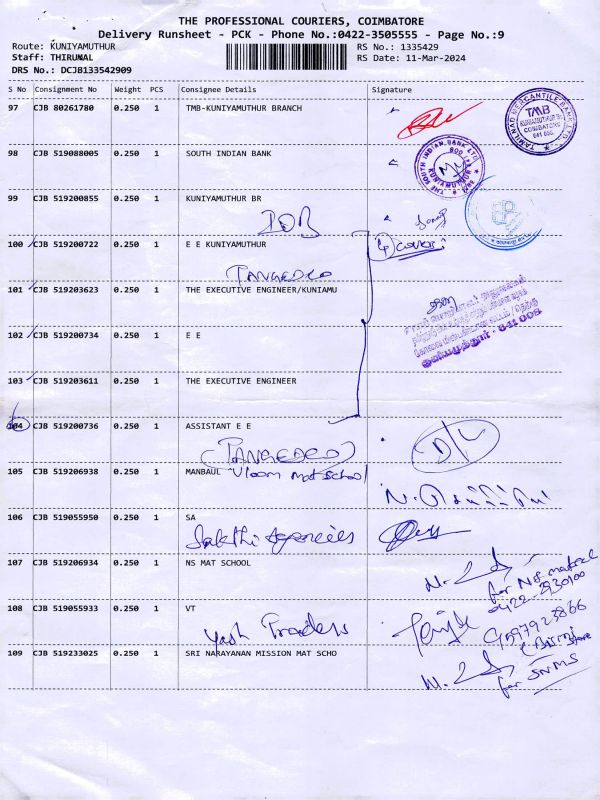 THE PROFESSIONAL COURIERS, COIMBATORE
Delivery Runsheet - PCK - Phone No.:0422-3505555 - Page No.:9
Route: KUNIYAMUTHUR RS No.: 1335429
Staff: THIRUNAL RS Date: 11-Mar-2024
DRS No.: DCJB133542909
S No Consignment No Weight PCS Consignee Details Signature
97 CJB 80261780 0.250 1 TMB-KUNIYAMUTHUR BRANCH
TAMILNAD MERCANTILE BANK LTD.
TMB
KUNIYAMUTHUR BR
COIMBATORE
641 008.
98 CJB 519088005 0.250 1 SOUTH INDIAN BANK
THE SOUTH INDIAN BANK LTD
KUNIYAMUTHUR
99 CJB 519200855 0.250 1 KUNIYAMUTHUR BR
IOB
100 CJB 519200722 0.250 1 E E KUNIYAMUTHUR
4 cover
TANGEDCO
101 CJB 519203623 0.250 1 THE EXECUTIVE ENGINEER/KUNIAMU
102 CJB 519200734 0.250 1 E E
641 008.
103 CJB 519203611 0.250 1 THE EXECUTIVE ENGINEER
104 CJB 519200736 0.250 1 ASSISTANT E E
(TANGEDCO) D/L
105 CJB 519206938 0.250 1 MANBAUL Uloom mat school
106 CJB 519055950 0.250 1 SA
Sakthi Agencies
107 CJB 519206934 0.250 1 NS MAT SCHOOL
for NS matrical
0422-2930100
108 CJB 519055933 0.250 1 VT
Yash Traders
9597923866
109 CJB 519233025 0.250 1 SRI NARAYANAN MISSION MAT SCHO
for SNMS